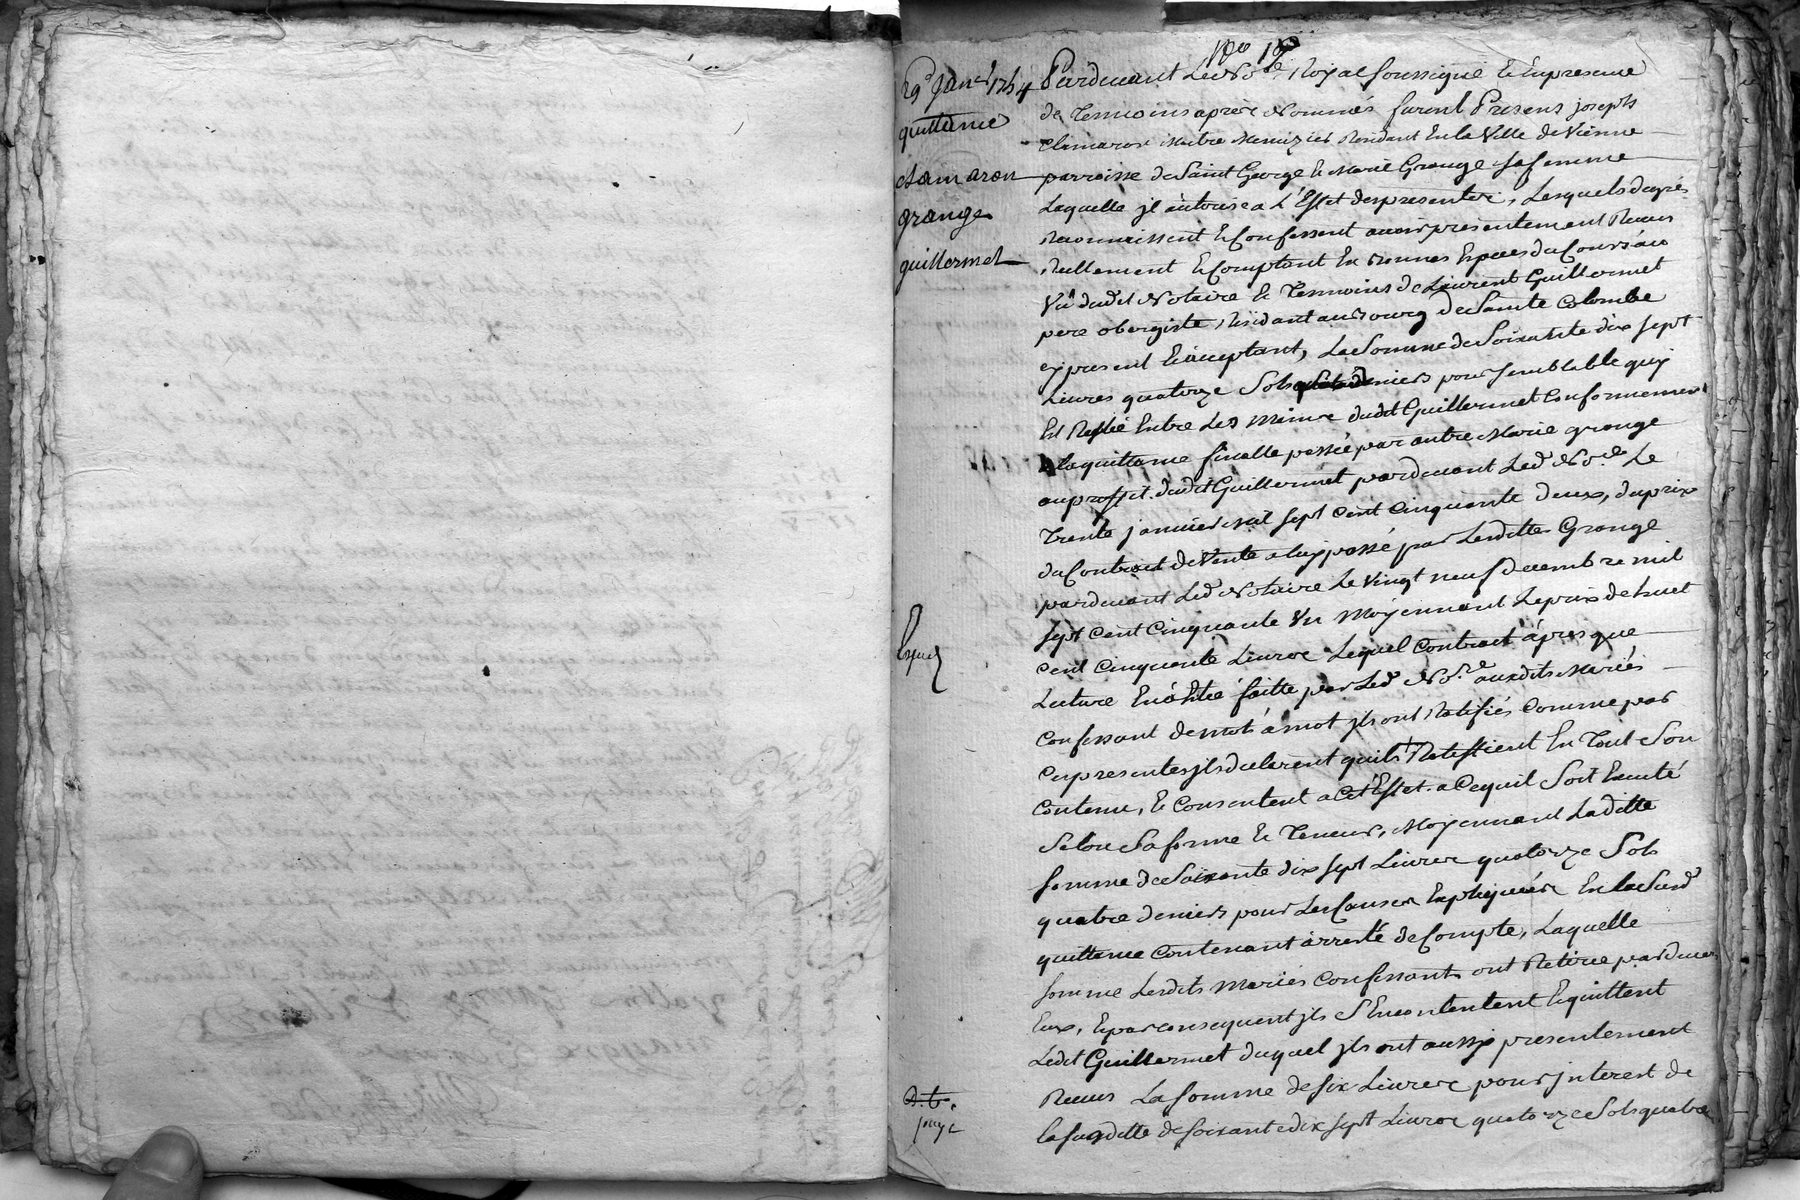 No 18
29 Janer 1754
quittance
chamaron
grange
guillermet
Pardevant Led No.re Royal soussigné & En presence
de Temoins après Nommés furent Presens joseph
chamaron Maitre Menuzier Residant En la Ville de Vienne
parroisse de Saint George & Marie Grange sa femme
Laquelle jl autorise a L'Effet des presentes, Lesquels de gré
Reconnaissent & Confessent avoir presentement Receus
Reellement & Comptant En bonnes Especes du Cours au
Vû dudit Notaire & Temoins de Laurent Guillermet
pere obergiste, Residant au Bourg de Sainte Colombe
cy present & acceptant, La Somme de Soixante dix sept
Livres quatorze Sols deniers pour semblable quy
Est Restée Entre Les Mains dudit Guillermet Conformement
a la quittance finalle passée par autre Marie grange
au proffit dudit Guillermet pardevant Led No.re Le
Trente janvier mil sept cent Cinquante deux, du prix
du Contract de Vente a luy passé par Laditte Grange
pardevant Led Notaire Le Vingt neuf Decembre mil
sept cent Cinquante Un Moyennant Le prix de huet
cent Cinquante Livres Lequel Contract àpres que
Lecture En à Eté faitte par Led No.re auxdits Mariés
Confessant de mot à mot jls ont Ratifiés Comme par
ces presentes jls declarent quils Ratiffient En Tout Son
Contenu, & Consentent a Cet Effet a Cequil Soit Executé
Selon Sa forme & Teneur, Moyennant Laditte
somme de Soixante dix sept Livres quatorze Sols
quatre deniers pour Les Causes Expliquées En la Susd
quittance Contenant àrresté de Compte, Laquelle
somme Lesdits Mariés Confessants ont Retirée pardevers
Eux, & par consequent jls S'En contentent & quittent
Ledit Guillermet duquel jls ont aussy presentement
Receus La somme de six Livres pour jnterest de
la susditte de soixante dix sept Livres quatorze Sols quatre